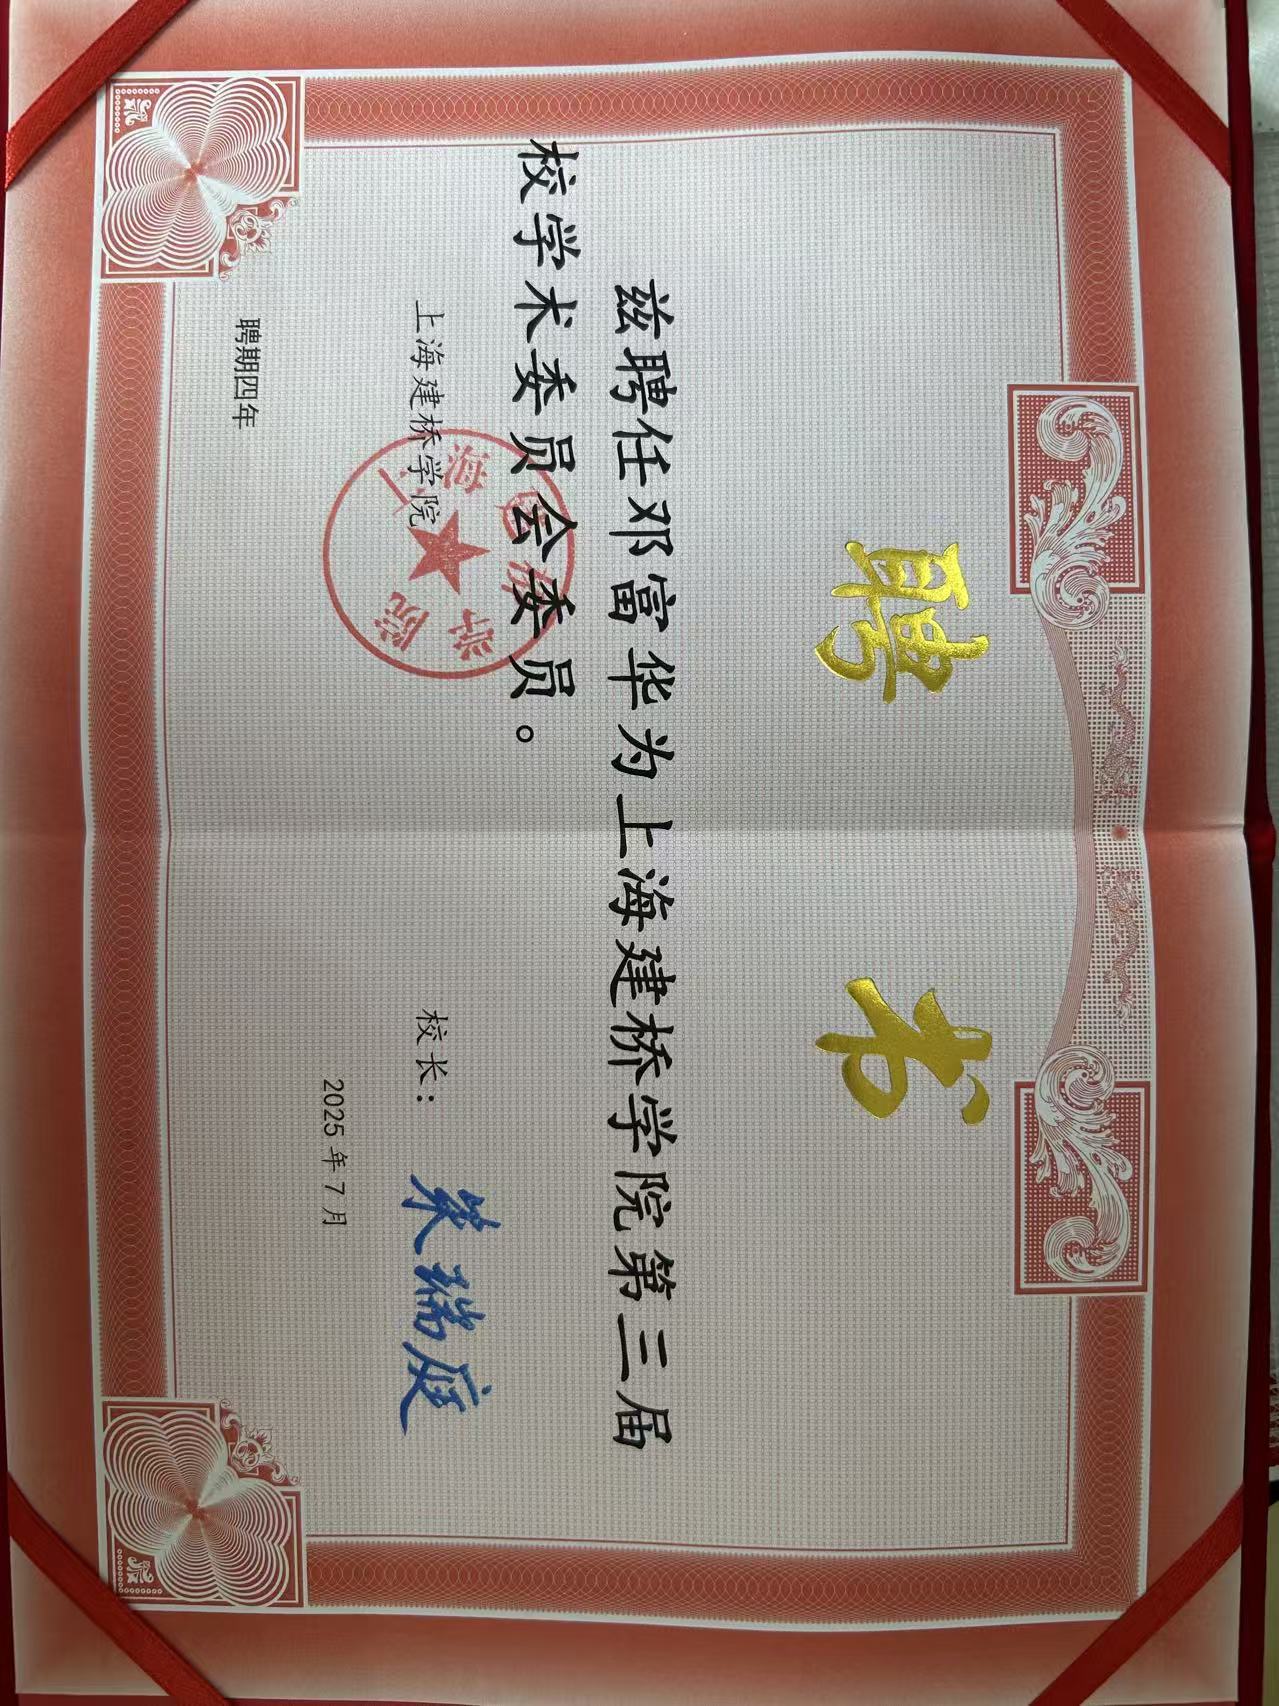 聘书
兹聘任邓富华为上海建桥学院第三届
校学术委员会委员。
上海建桥学院
校长：朱瑞庭
2025年7月
聘期四年
上海建桥学院